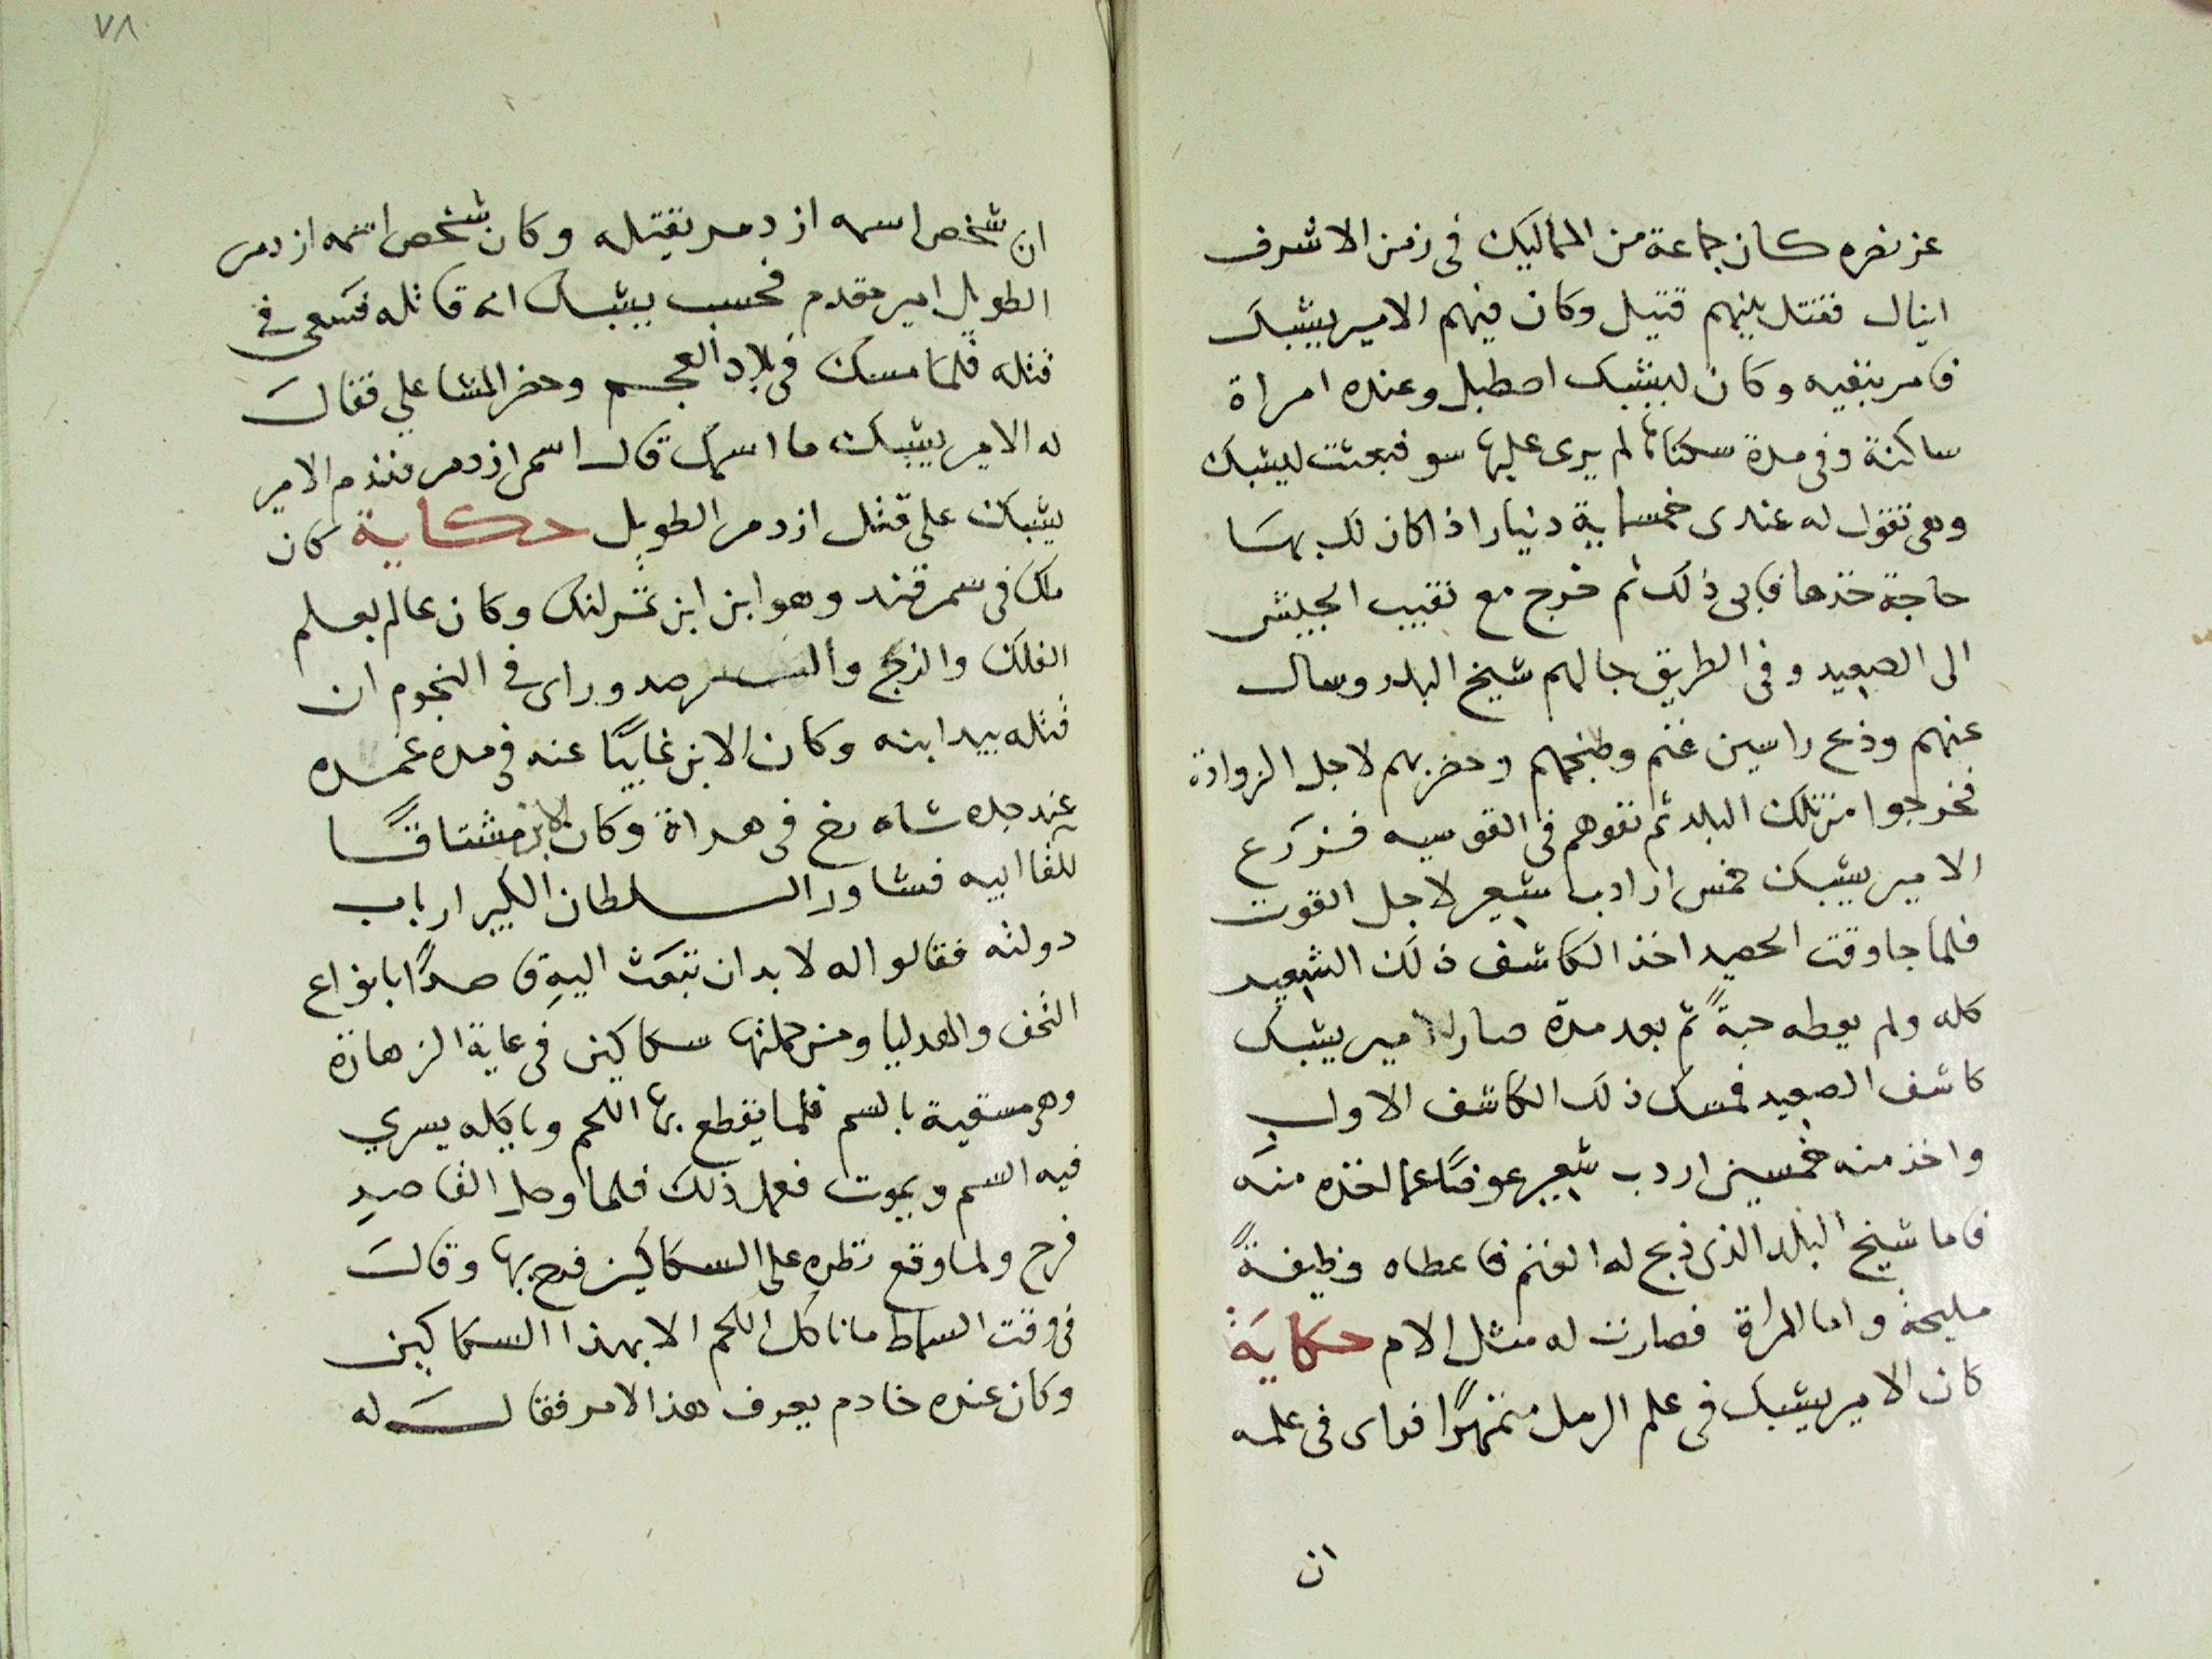 عز نصره كان جماعة من المماليك فى زمن الاشرف
اينال فقتل بينهم قتيل وكان فيهم الامير يشبك
فامر بنفيه وكان ليشبك اصطبل وعنده امراة
ساكنة وفى مدة سكناتها لم يرى عليها سو فبعثت ليشبك
وهى تقول له عندى خمسماية دينار اذا كان لك بها
حاجة خذها فابى ذلك ثم خرج مع نقيب الجيش
الى الصعيد وفى الطريق جا لهم شيخ البلد وسال
عنهم وذبح راسين غنم وطبخهم وحضر بهم لاجل الزوادة
فخرجوا من تلك البلد ثم نفوهم فى القوسيه فزرع
الامير يشبك خمس ارادب شعير لاجل القوت
فلما جا وقت الحصيد اخذ الكاشف ذلك الشعير
كله ولم يعطه حبةً ثم بعد مدة صار الامير يشبك
كاشف الصعيد فمسك ذلك الكاشف الاول
واخذ منه خمسين اردب شعير عوضًا عما اخذه منه
فاما شيخ البلد الذى ذبح له الغنم فاعطاه وظيفةً
مليحة واما المراة فصارت له مثل الام حكاية
كان الامير يشبك فى علم الرمل متمهرًا فراى فى علمه
ان
٧٨
ان شخص اسمه ازدمر يقتله وكان شخص اسمه ازدمر
الطويل امير مقدم فحسب يشبك انه قاتله فسعى فى
قتله فلما مسك فى بلاد العجم وحضر المشاعلي فقال
له الامير يشبك ما اسمك قال اسمى ازدمر فندم الامير
يشبك على قتل ازدمر الطويل حكاية كان
ملك فى سمرقند وهو ابن ابن تمرلنك وكان عالم بعلم
الفلك والزيج والرصد وراى فى النجوم ان
قتله بيد ابنه وكان الابن غايبًا عنه فى مدة عمره
عند جده شاه رخ فى هراة وكان الابن مشتاقًا
للقا ابيه فشاور السلطان الكبير ارباب
دولته فقالوا له لا بد ان تبعث اليه قاصدًا بانواع
التحف والهدايا ومن جملتها سكاكين فى غاية الزهازة
وهى مسقية بالسم فلما يقطع بها اللحم وياكله يسري
فيه السم ويموت ففعل ذلك فلما وصل القاصد
فرح ولما وقع نظره على السكاكين فرح بها وقال
فى وقت السماط ما ناكل اللحم الا بهذا السكاكين
وكان عنده خادم يعرف هذا الامر فقال له